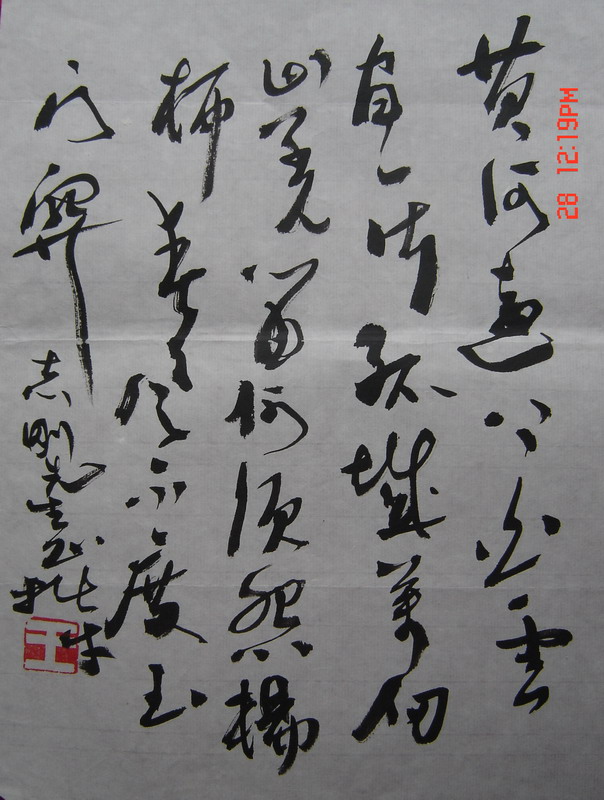 黄河遠上白雲
间一片孤城萬仞
山羌笛何須怨楊
柳春风不度玉
门関
志剛先生正
王
28 12:19PM